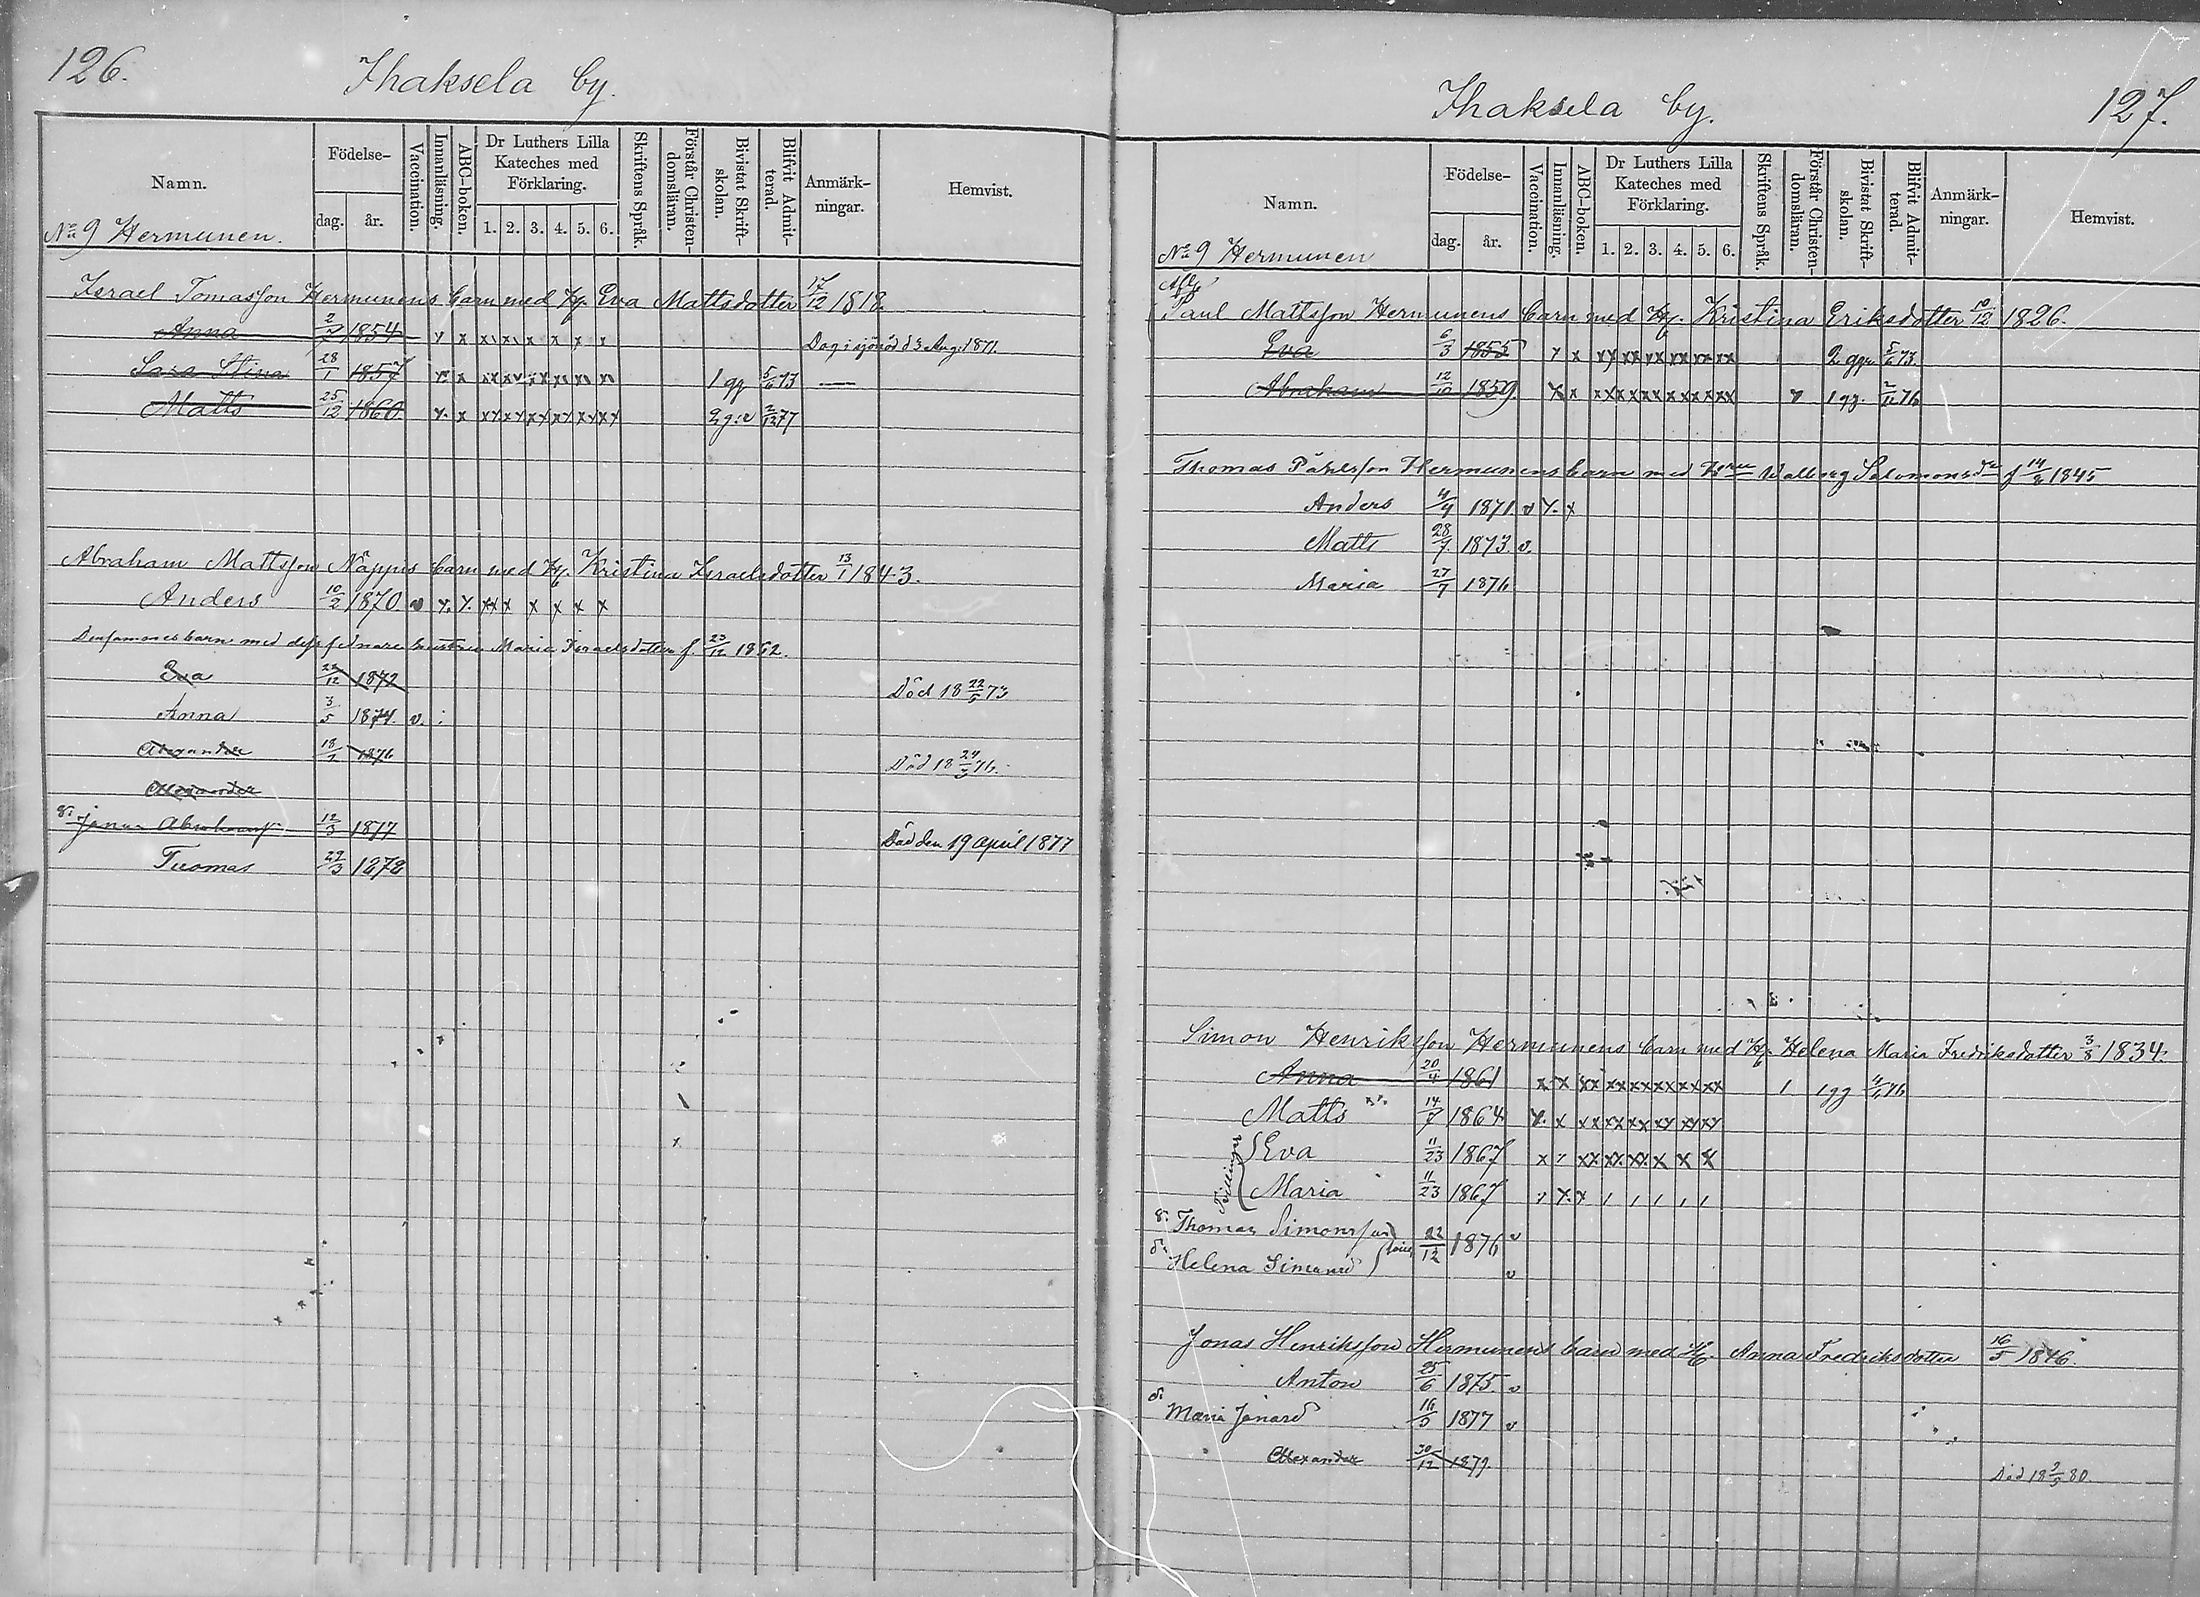 126.
Ihaksela by.
Namn.
Födelse-
dag. år.
Vaccination.
Innanläsning.
ABC-boken.
Dr Luthers Lilla Kateches med Förklaring.
1. 2. 3. 4. 5. 6.
Skriftens Språk.
Förstår Christen-domsläran.
Bivistat Skrift-skolan.
Blifvit Admit-terad.
Anmärk-ningar.
Hemvist.
No 9 Hermunen.
Israel Tomasson Hermunens barn med H. Eva Mattsdotter 17/12 1818
Anna 1854 x x x x x x x x Dog i sjönöd d 3 Aug. 1871.
Sara Stina 28/1 1857 1 gg 5/6 73
Matts 25/12 1860 2 g:r 2/12 77
Abraham Mattsson Näppis barn med H. Kristina Israelsdotter 13/1 1843.
Anders 10/2 1870 v x. x. xx x x x x x
Densammes barn med dess sednare hustru Maria Israelsdotter f. 23/12 1852.
Eva 23/12 1872 Död 18 22/5 73
Anna 3/5 1874. v.
Alexander 18/1 1876 Död 18 24/3 76.
Alexander
Jonas Abrahamss 12/3 1877 Död den 19 april 1877
Tuomas 29/3 1878
Ihaksela by.
127.
Namn.
Födelse-
dag. år.
Vaccination.
Innanläsning.
ABC-boken.
Dr Luthers Lilla Kateches med Förklaring.
1. 2. 3. 4. 5. 6.
Skriftens Språk.
Förstår Christen-domsläran.
Bivistat Skrift-skolan.
Blifvit Admit-terad.
Anmärk-ningar.
Hemvist.
No 9 Hermunen
Paul Mattsson Hermunens barn med H. Kristina Eriksdotter 10/12 1826.
Eva 6/3 1855 x x xx xx xx xx xx xx 2 ggr 5/6 73
Abraham 12/10 1859 x x xx xx xx xx xx xx 1 gg. 2/11 76
Thomas Påhlsson Hermunens barn med Walborg Salomonsdr f 14/2 1845
Anders 4/4 1871 v x. x
Matts 28/7 1873 v.
Maria 27/7 1876
Simon Henriksson Hermunens barn med H. Helena Maria Fredriksdotter 3/8 1834.
Anna 20/4 1861 1 1 gg 76
Matts 14/7 1864
Tvillingar
Eva 11/23 1867
Maria 11/23 1867
Thomas Simonsson 22/12 1876 v
Helena Simonsd v
Jonas Henriksson Hermunens barn med H. Anna Fredriksdotter 16/5 1846.
Anton 25/6 1875 v
Maria Jonasd 16/5 1877 v
Alexander 30/12 1879. Död 18 2/5 80